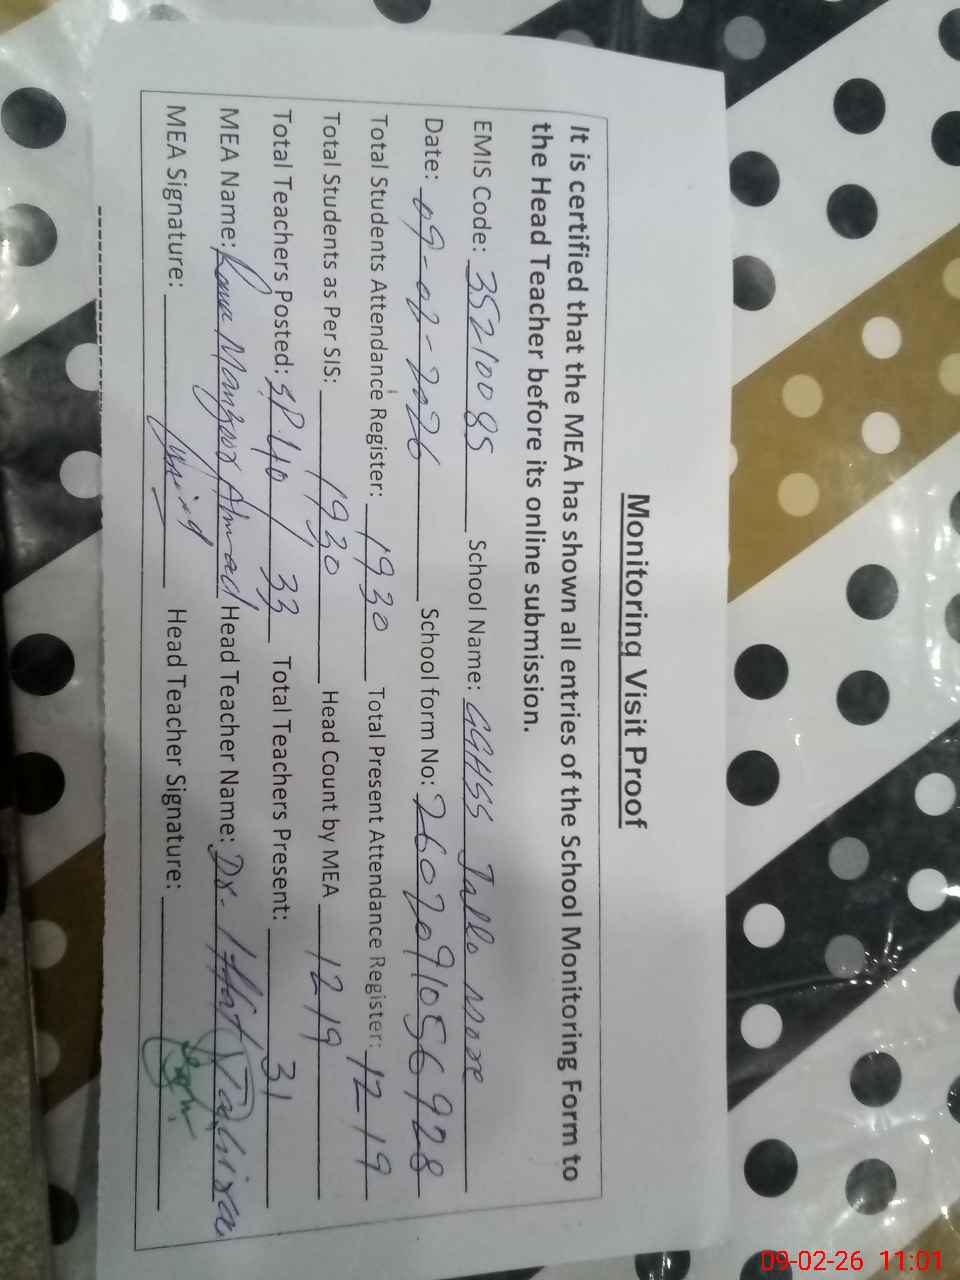 Monitoring Visit Proof
It is certified that the MEA has shown all entries of the School Monitoring Form to
the Head Teacher before its online submission.
EMIS Code: 35210085 School Name: GGHSS Jallo More
Date: 09-02-2026 School form No: 2602091056928
Total Students Attendance Register: 1930 Total Present Attendance Register: 1219
Total Students as Per SIS: 1930 Head Count by MEA 1219
Total Teachers Posted: 33 Total Teachers Present: 31
MEA Name: Manzoor Ahmad Head Teacher Name: Dr. Tahira
MEA Signature: Head Teacher Signature:
09-02-26 11:01